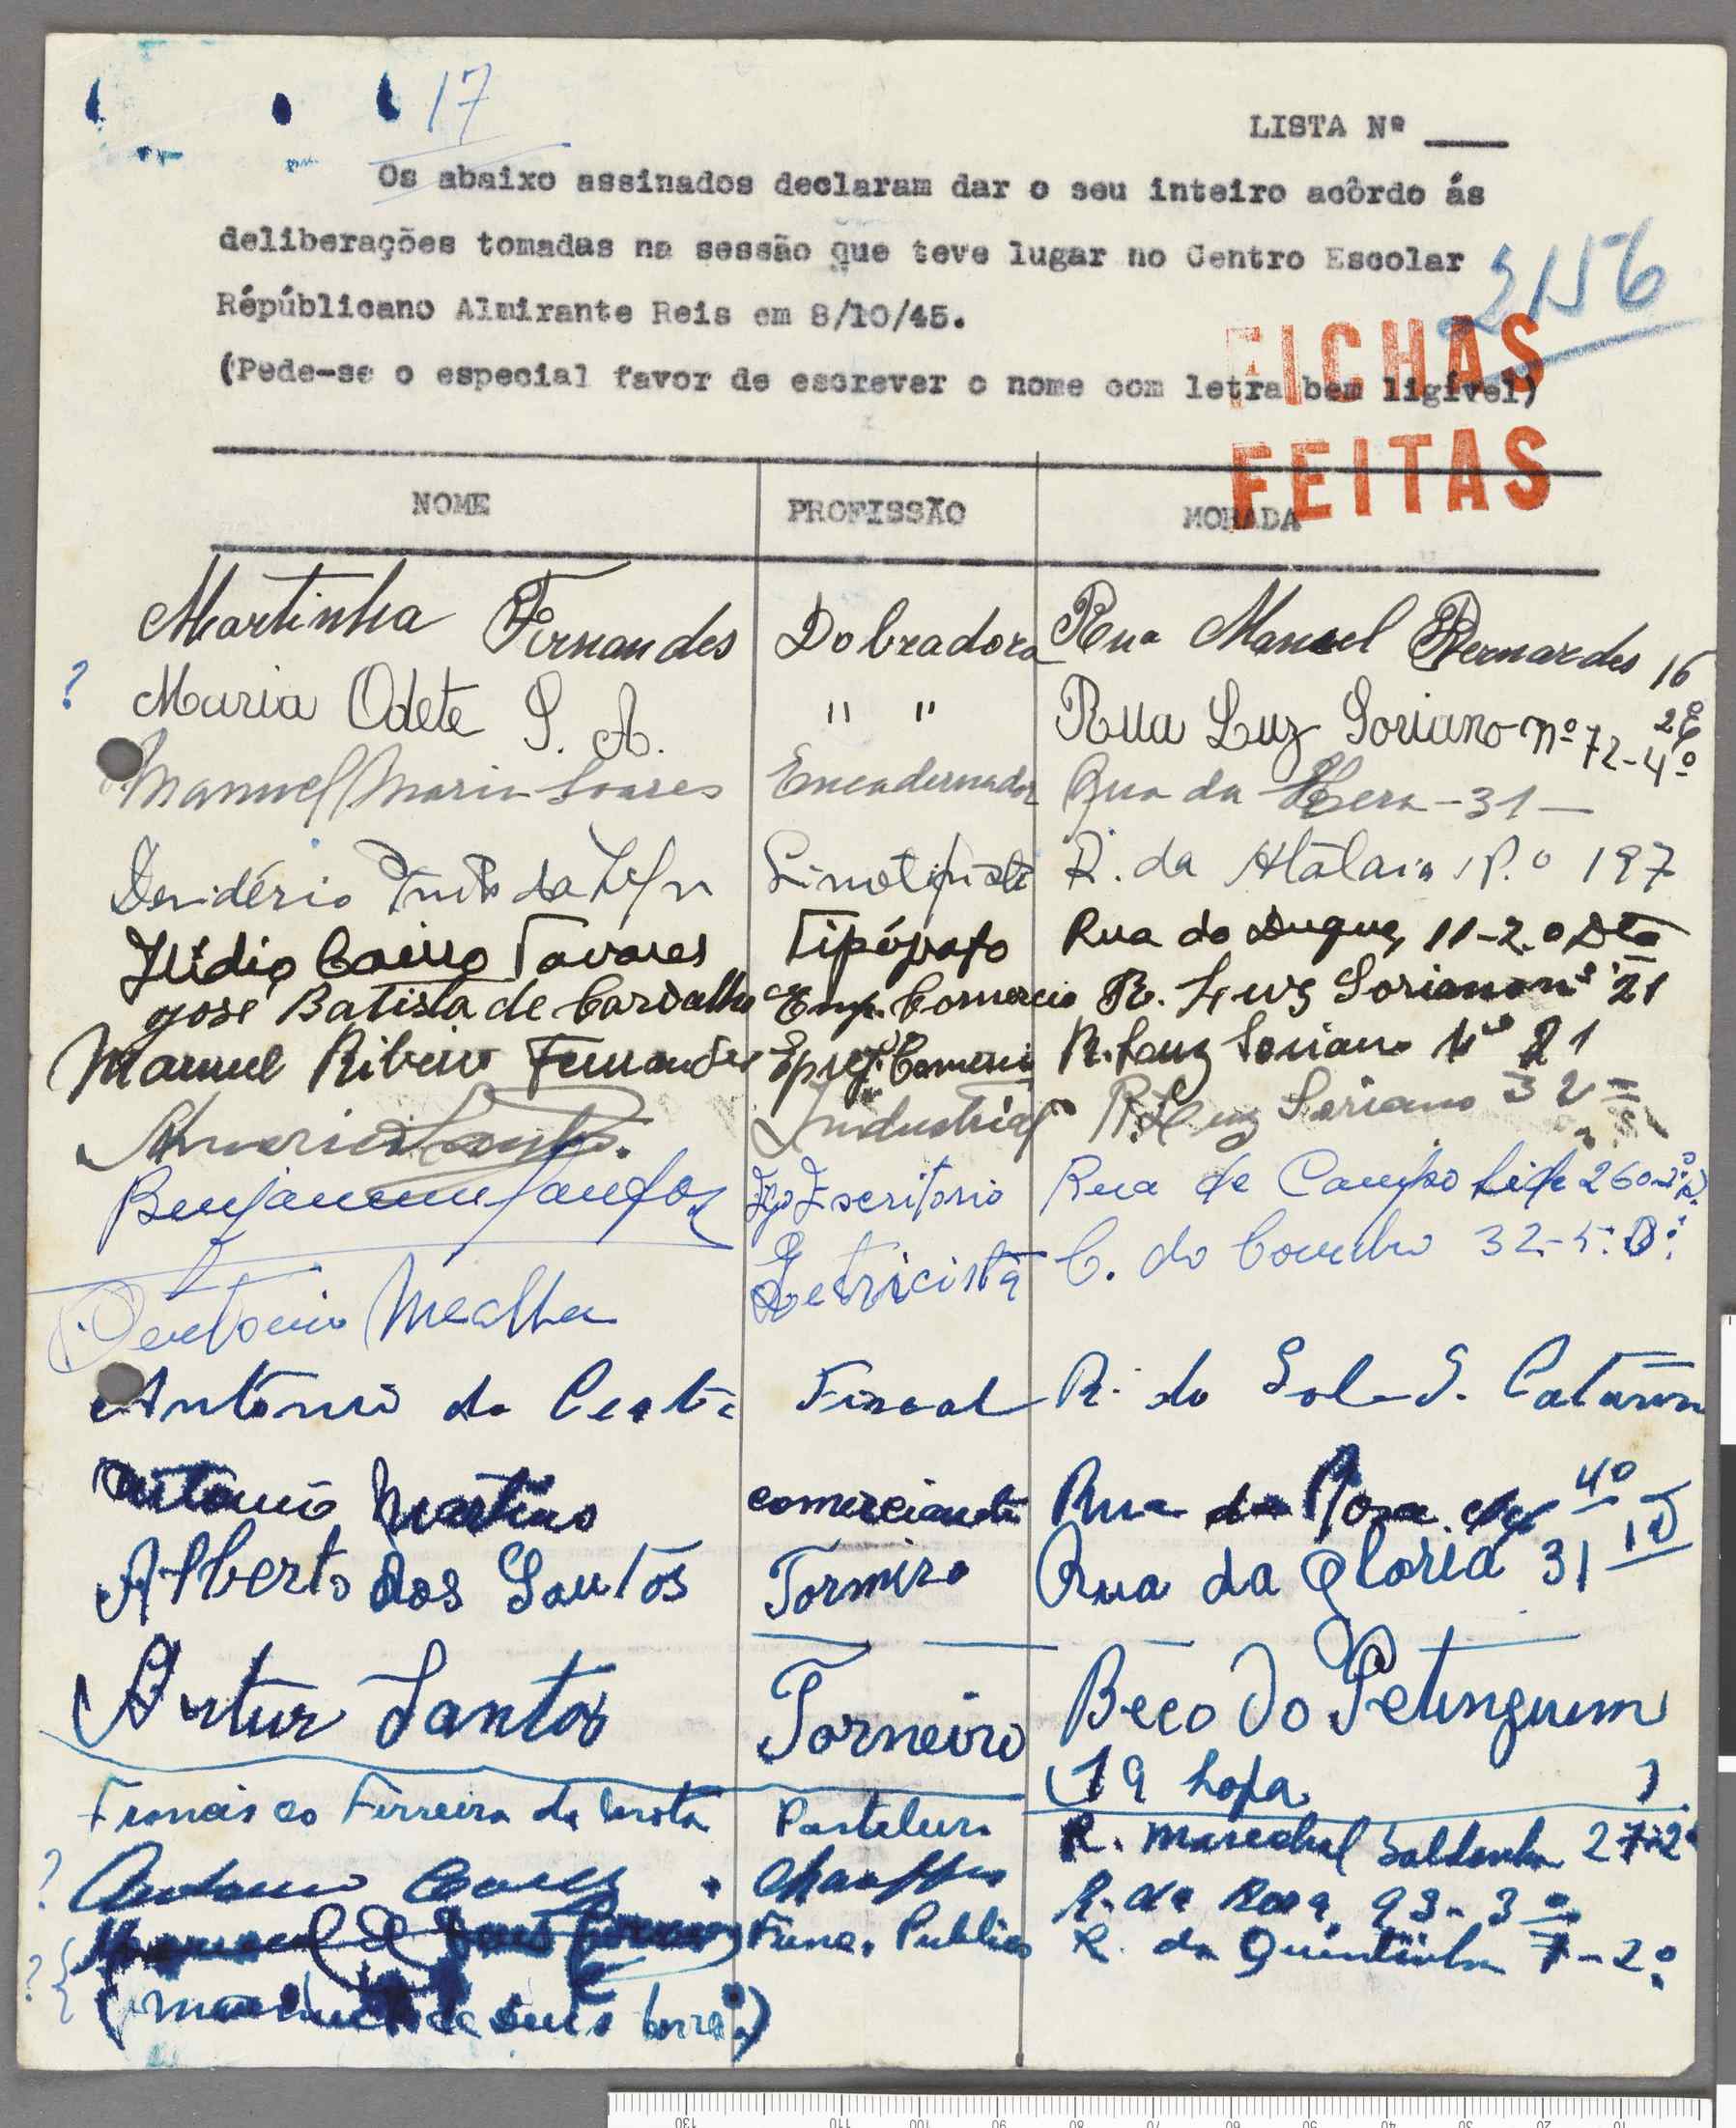 17
LISTA Nº
Os abaixo assinados declaram dar o seu inteiro acôrdo ás
deliberações tomadas na sessão que teve lugar no Centro Escolar
Républicano Almirante Reis em 8/10/45.
(Pede-se o especial favor de escrever o nome com letra bem ligível)
2156
FICHAS
FEITAS
NOME PROFISSÃO MORADA
Martinha Fernandes Dobradora Rua Manuel Bernardes 16
2º E
? Maria Odete S. A. " " Rua Luz Soriano nº 72-4º
Manuel Maria Soares Encadernador Rua da Hera-31-
Desidério da Linotipista R. da Atalaia N.º 197
Ilidio Cairo Tavares Tipógrafo Rua do Duque, 11-2.o Dto
José Batista de Carvalho Emp. Comercio R. Luz Soriano nº 21
Manuel Ribeiro Fernandes Epreg. Comercio R. Luz Soriano Nº 21
Americo Santos. Industrial R. Luz Soriano 32
Benjamim Santos Escritorio Rua de Campo Lide 260
Antonio Mealha Eletricista C. do Combro 32-5.º D.
António da Costa Fiscal R. do Sol S. Catarina
Antonio Martins comerciante Rua da Rosa 4º
Alberto dos Santos Tormiro Rua da Gloria 31 1º D
Artur Santos Torneiro Beco do Petinguim
(19 Loja )
Francisco Ferreira da Costa Pasteleiro R. Marechal Saldanha 27-2º
? Antonio chauffeur R. da Rosa, 93-3º
? Manuel Func. Publico R. da Quintinha 7-2º